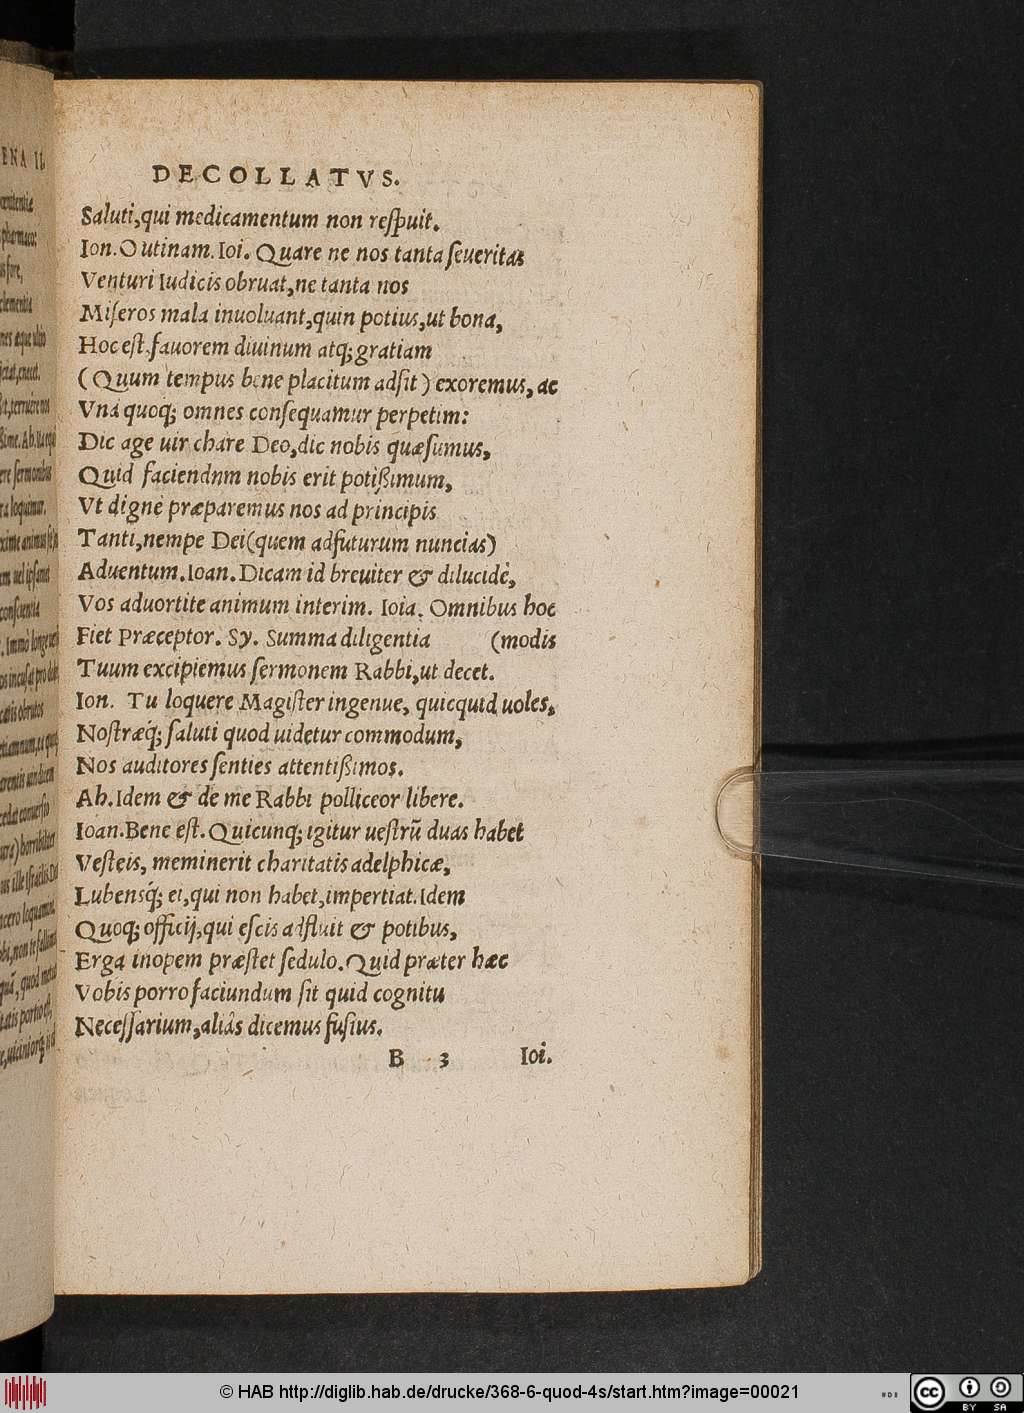 DECOLLATVS.
Saluti,qui medicamentum non reſpuit.
Ion.O utinam.Ioi. Quare ne nos tanta ſeueritas
Venturi Iudicis obruat,ne tanta nos
Miſeros mala inuoluant,quin potius,ut bona,
Hoc eſt.fauorem diuinum atq;gratiam
(Quum tempus bene placitum adſit) exoremus, ac
Vná quoq; omnes conſequamur perpetim:
Dic age uir chare Deo,dic nobis quæſumus,
Quid faciendnm nobis erit potißimum,
Vt dignè præparemus nos ad principis
Tanti,nempe Dei(quem adfuturum nuncias)
Aduentum.Ioan.Dicam id breuiter & dilucidè,
Vos aduortite animum interim. Ioia. Omnibus hoc
Fiet Præceptor. Sy. Summa diligentia (modis
Tuum excipiemus ſermonem Rabbi,ut decet.
Ion. Tu loquere Magiſter ingenue, quicquid uoles,
Noſtræq́; ſaluti quod uidetur commodum,
Nos auditores ſenties attentißimos.
Ab.Idem & de me Rabbi polliceor libere.
Ioan.Bene eſt.Quicunq; igitur ueſtrũ duas habet
Veſteis, meminerit charitatis adelphicæ,
Lubensq́; ei,qui non habet,impertiat.Idem
Quoq;officij,qui eſcis adfluit & potibus,
Erga inopem præſtet ſedulo.Quid præter hæc
Vobis porro faciundum ſit quid cognitu
Neceſſarium,aliàs dicemus fuſius.
B 3 Ioi.
© HAB http://diglib.hab.de/drucke/368-6-quod-4s/start.htm?image=00021
cc BY SA